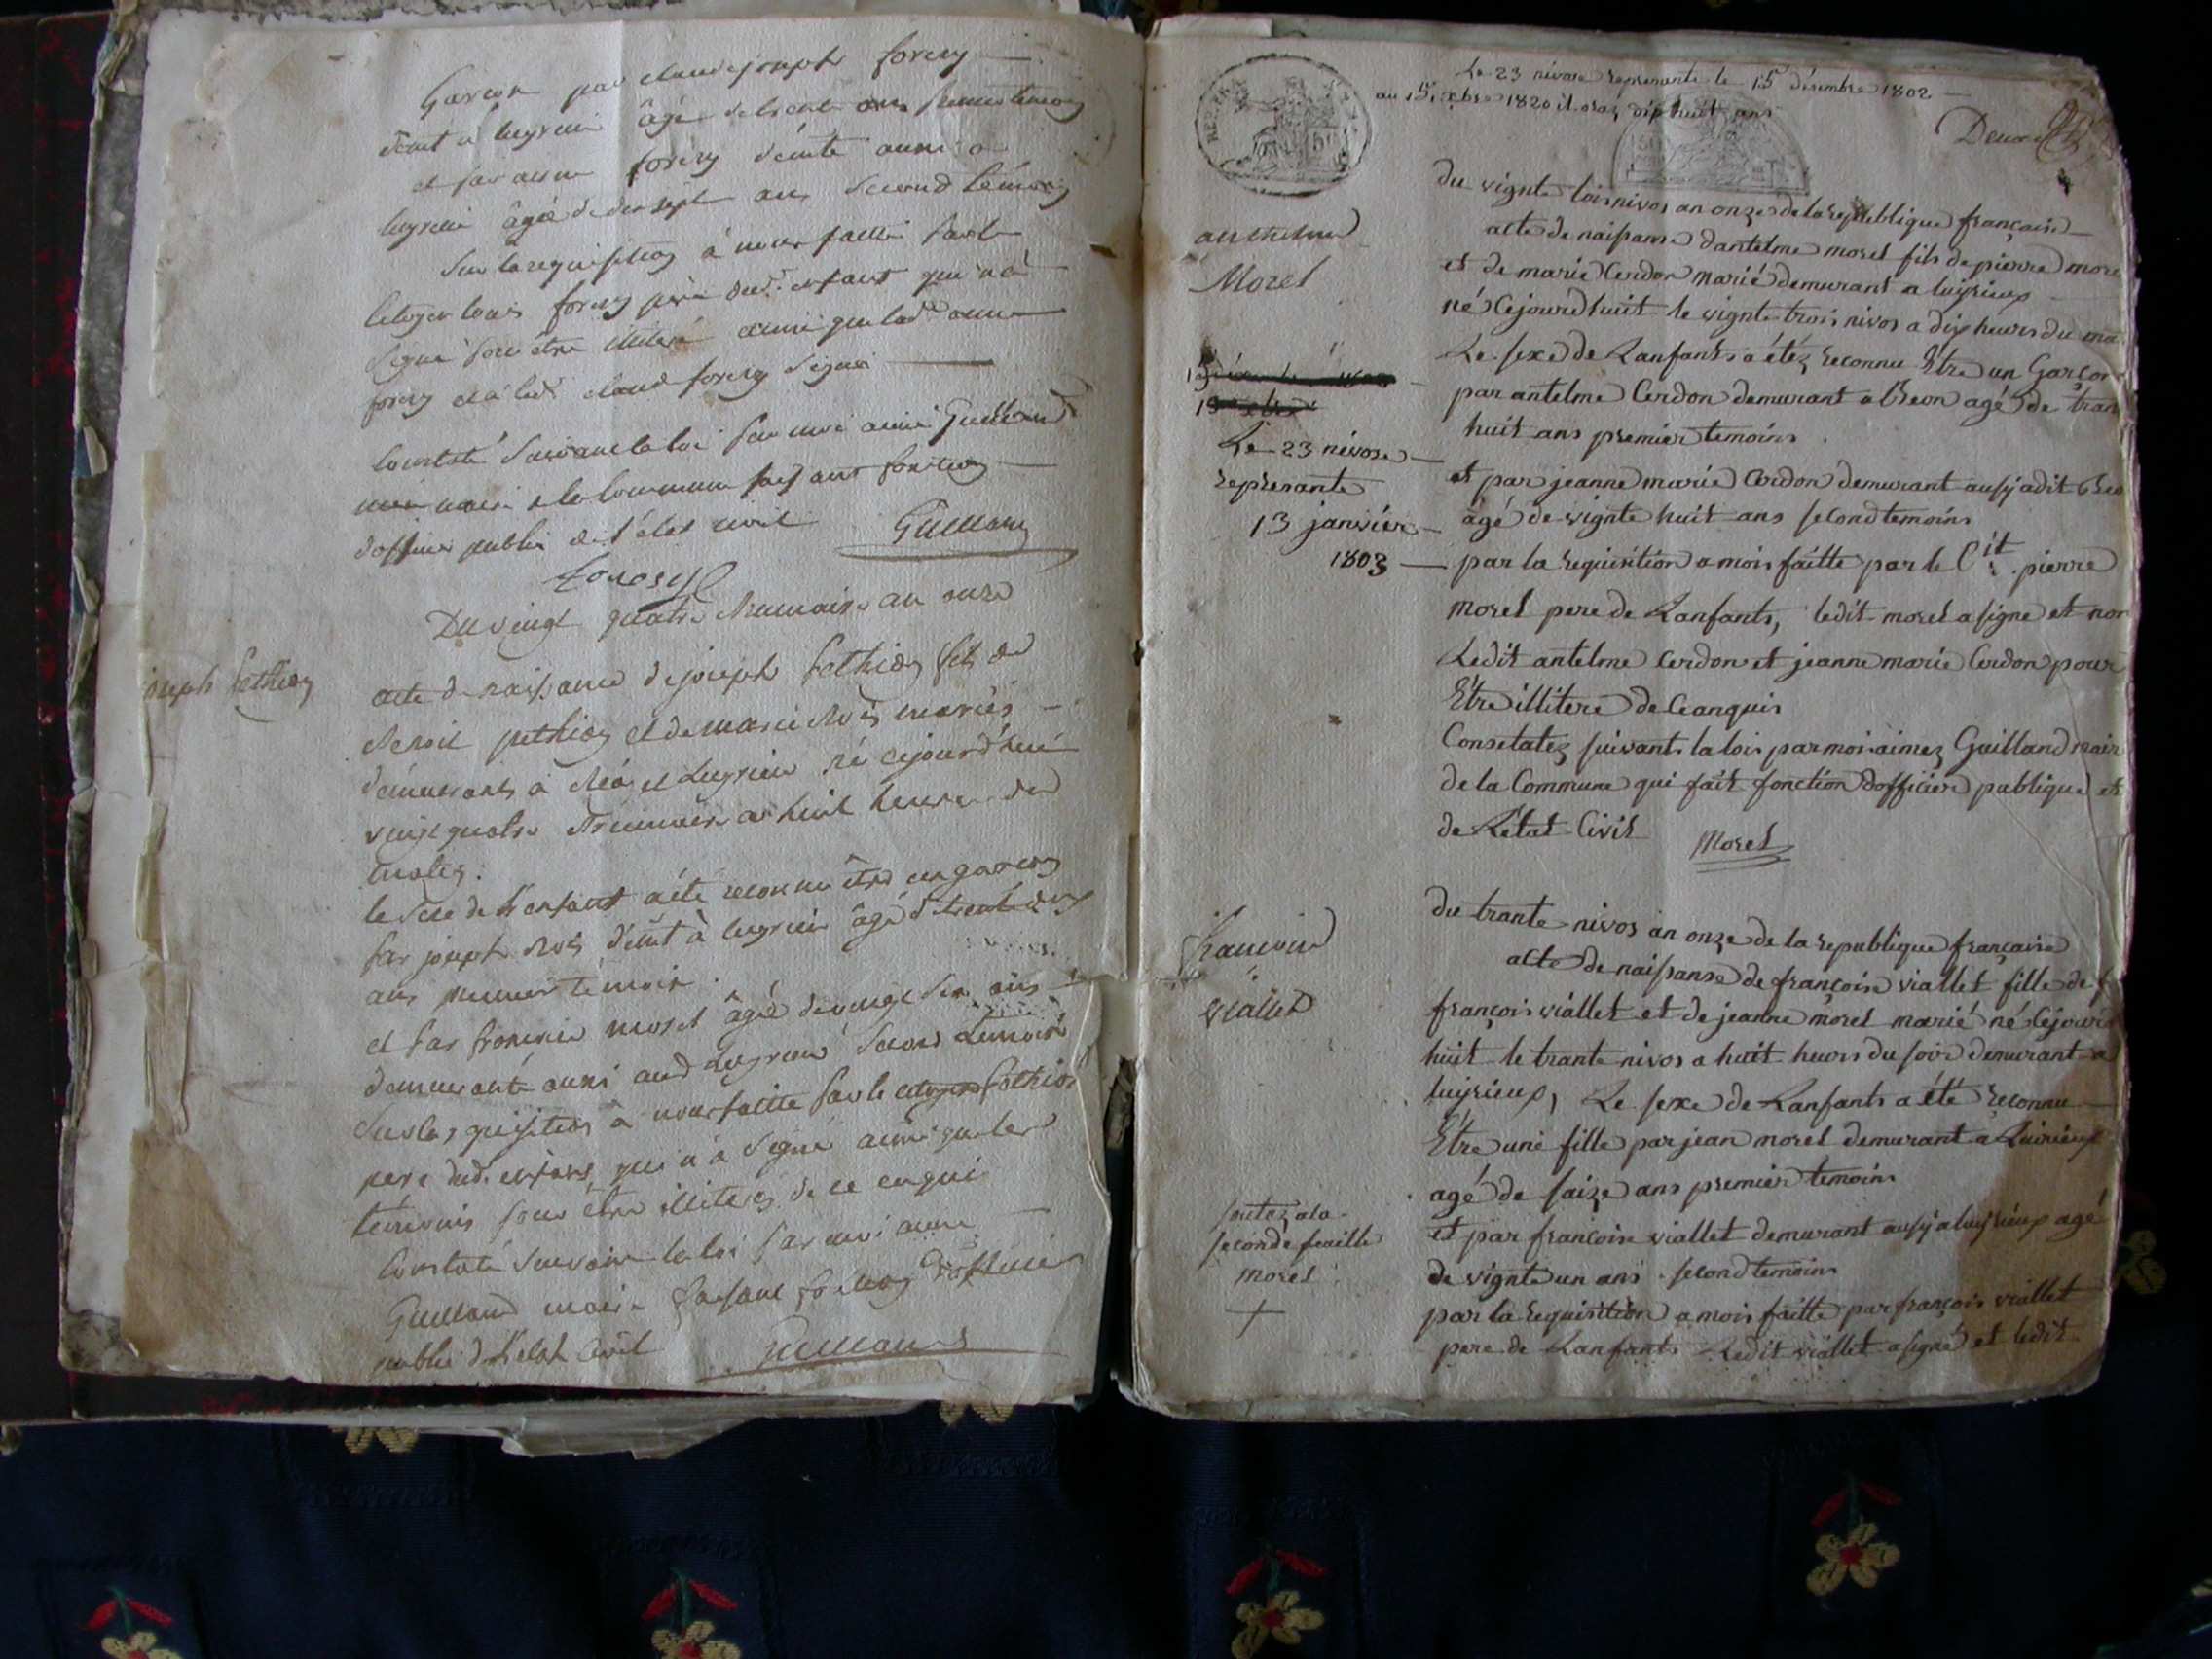 Garcon par claude joseph forery
demt a lugrieu âgé de trente ans premier temoin
et par anne forery demte aussi a
lugrieu âgée de dix sept ans second témoin
Sur la requisition à nous faitte par le
citoyen louis forery père dud. enfant qui n'a
signé pour être illiteré ainsi que lad. anne
forery et a led. claud forery signé
Constaté suivant la loi par moi aimé Guilland
maire de la commune faisant fonction
d'officier public de l'état civil Guilland
Du vingt quatre brumaire an onze
joseph
acte de naissance de joseph fils de
benoit et de marie mariés
demeurants à et Lugrieu né cejourd'hui
vingt quatre à huit heures du
matin.
le sexe de l'enfant a été reconnu être un garcon
par joseph demt à lugrieu âgé de trente deux
ans premier temoin.
et par morel âgée de vingt six ans
demeurante aussi aud Lugrieu second temoin
Sur la requisition à nous faitte par le citoyen
pere dud. enfant, qui n'a signé ainsi que les
témoins pour être illiterés de ce enquis
Constaté suivant la loi par moi aimé
Guilland maire faisant fonction d'officier
public de l'état Civil Guilland
Le 23 nivose represante le 15 désembre 1802
au 15 xbre 1820 il oraz dix huit ans
Deuxe
anthelme
Morel
Le 23 nivose
represante
13 janvier
1803
du vignte trois nivos an onze de la republique française
acte de naissanse dantelme morel fils de pierre more
et de marie Cerdon marié demurant a luyrieux
né Cejourdhuit le vignte trois nivos a dix heurs du ma
Le sexe de Lanfants a étéz reconnu Etre un Garçon
par antelme Cerdon demurant a Beon agé de tran
huit ans premier temoins
et par jeanne marie Cerdon demurant ausy adit Beo
âgé de vignte huit ans second temoins
par la requisition a mois faitte par le Cit. pierre
morel pere de Lanfants, ledit morel a signe et non
Ledit antelme Cerdon et jeanne marie Cerdon pour
Etre illitere de Ceanquis
Constatez suivants la lois par moi aimez Guilland mair
de la Commune qui fait fonction dofficier publique et
de Létat Civil Morel
francoise
viallet
du trante nivos an onze de la republique française
acte de naissanse de françoise viallet fille de f
françois viallet et de jeanne morel marié né Cejourd
huit le trante nivos a huit heurs du soir demurant a
luyrieux, Le sexe de Lanfants a été reconnu
Etre une fille par jean morel demurant a Luirieux
agé de saize ans premier temoins
et par francoise viallet demurant ausy a luyrieux agé
de vignte un ans second temoins
par la requisition a mois faitte par françois viallet
pere de Lanfants Ledit viallet a signé et ledit
sortez a la
seconde feaille
morel
+